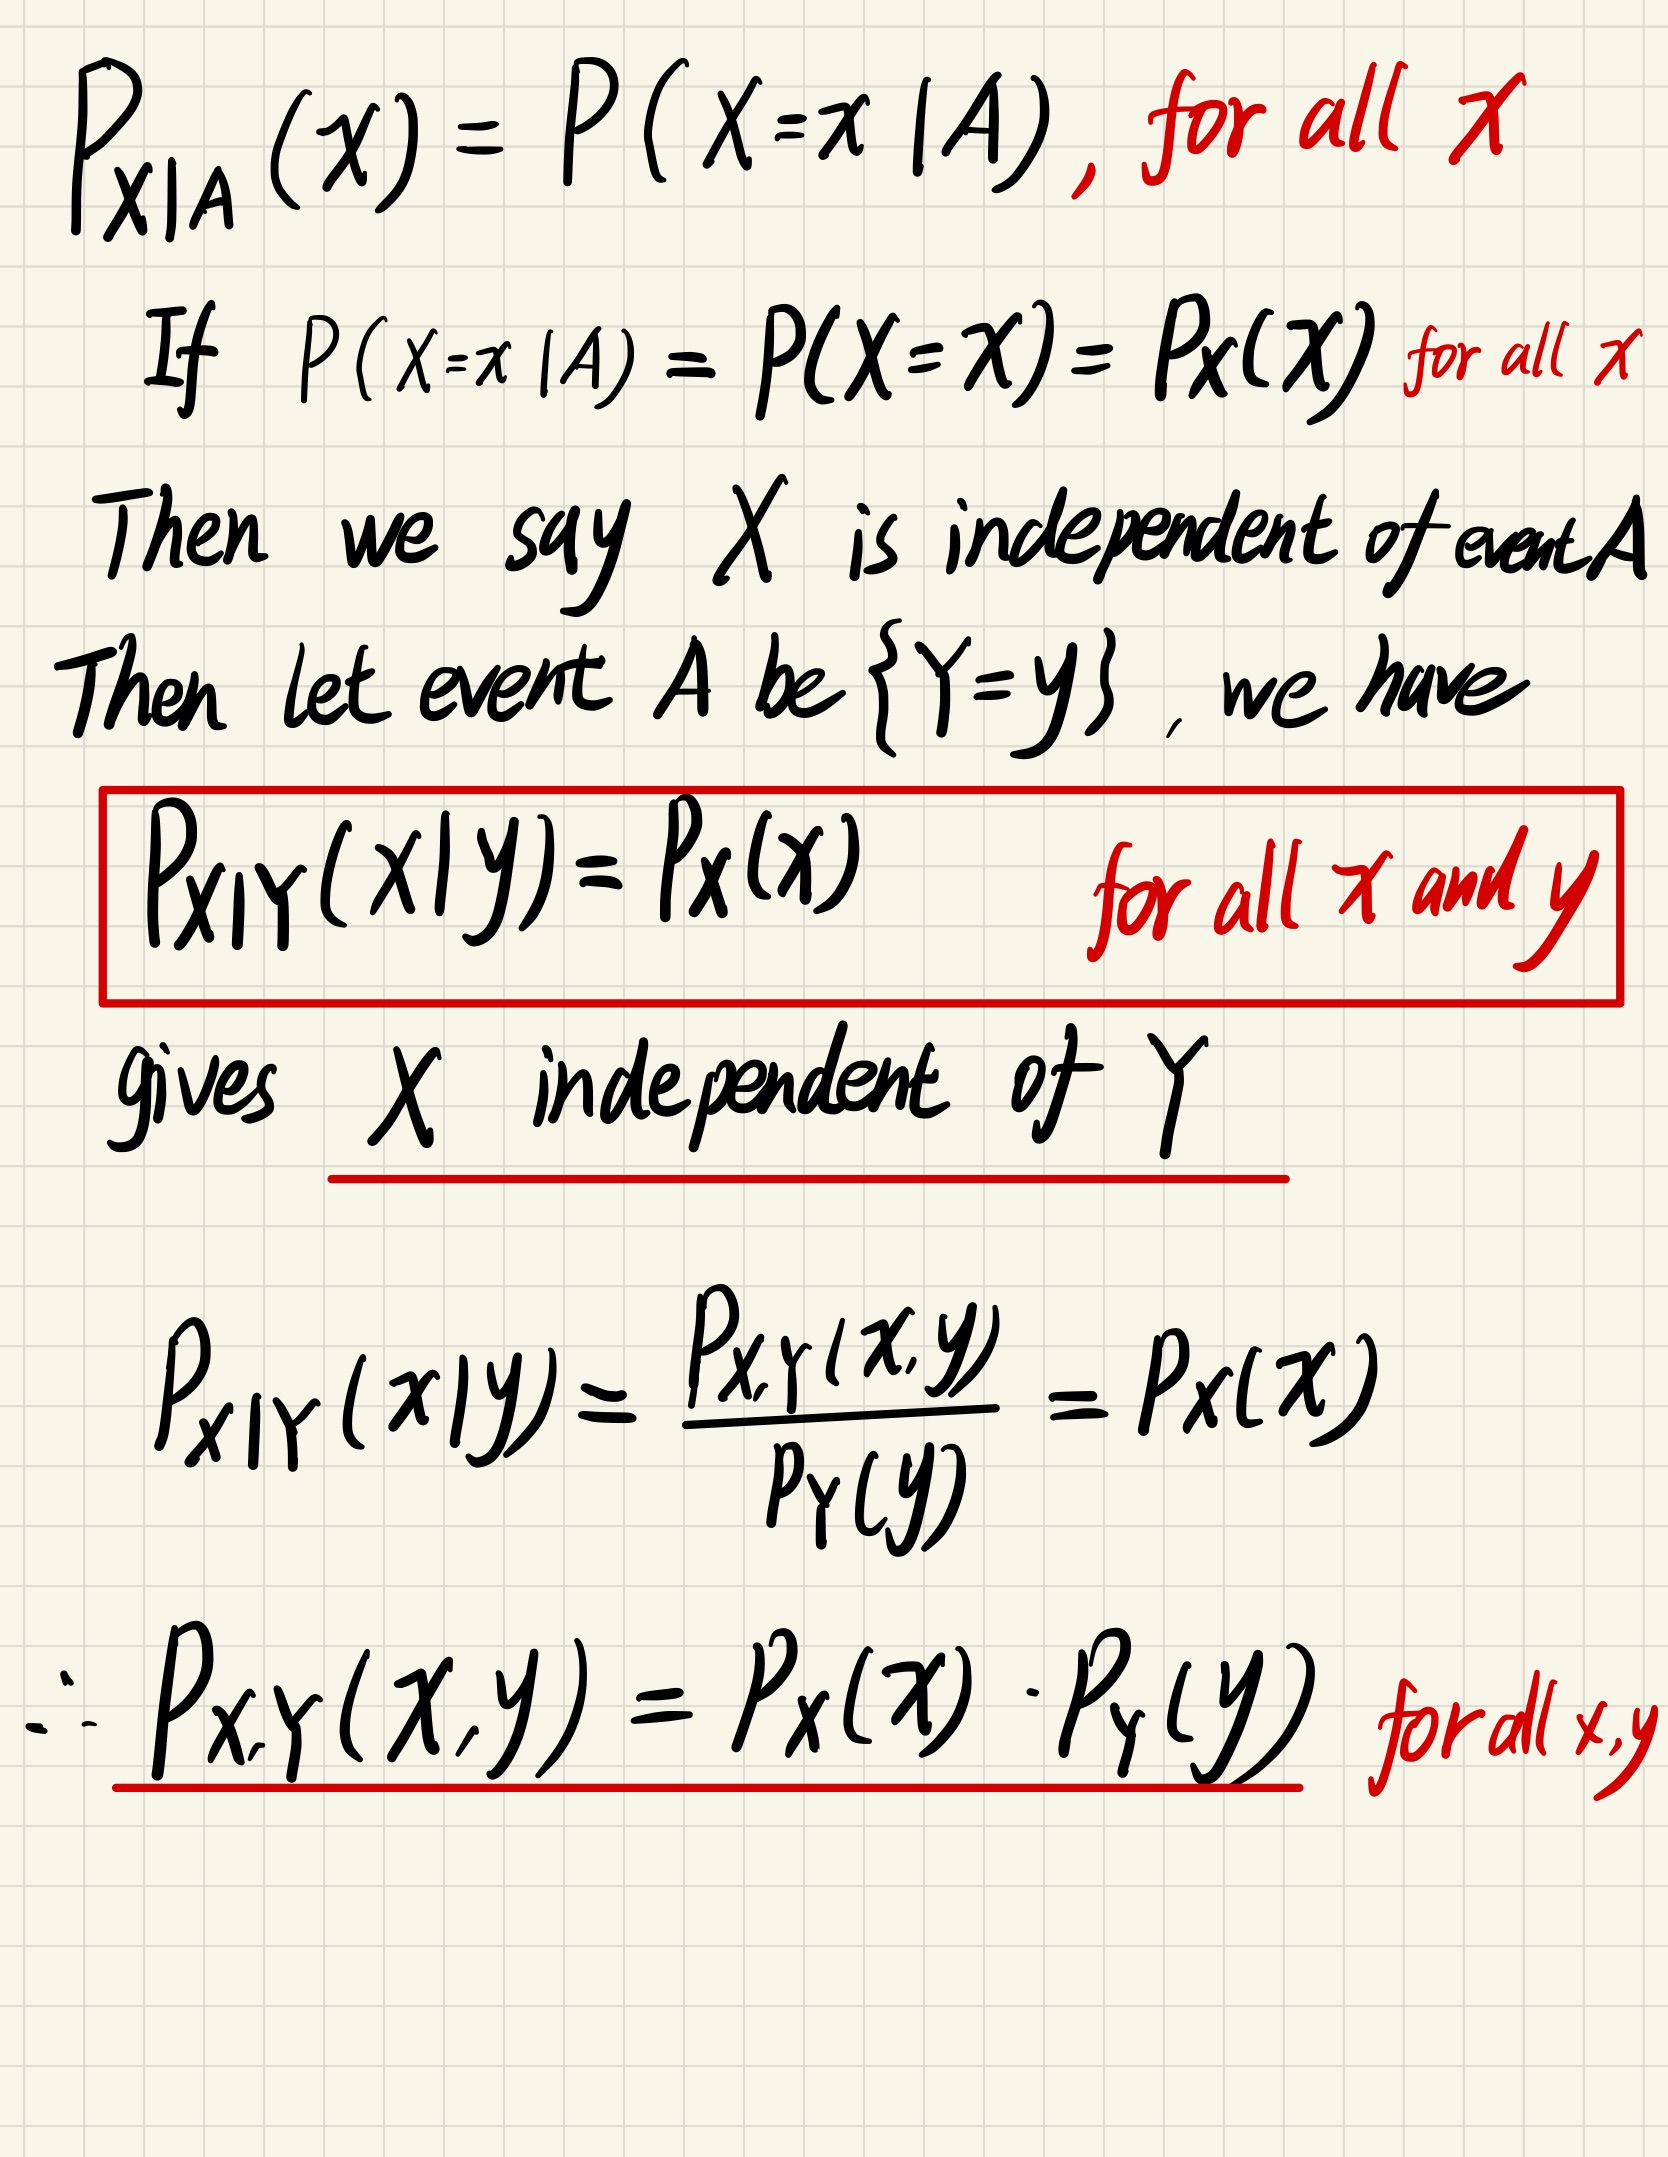 P_{X|A}(x) = P(X=x|A), for all x
If P(X=x|A) = P(X=x) = P_X(x) for all x
Then we say X is independent of event A
Then let event A be {Y=y}, we have
P_{X|Y}(x|y) = P_X(x) for all x and y
gives X independent of Y
P_{X|Y}(x|y) = \frac{P_{X,Y}(x,y)}{P_Y(y)} = P_X(x)
∴ P_{X,Y}(x,y) = P_X(x) · P_Y(y) for all x,y